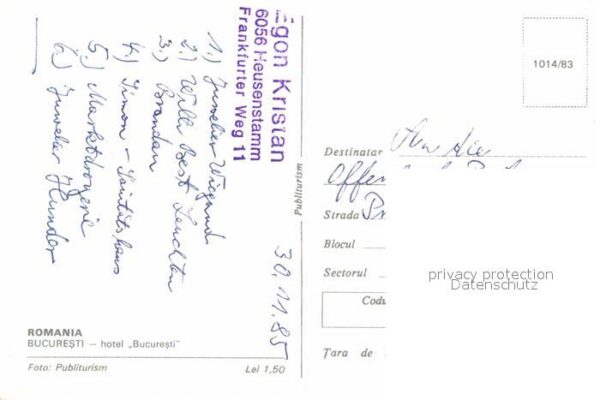 Egon Kristan
6056 Heusenstamm
Frankfurter Weg 11
1.) Juwelier Wiegand
2.) Willi Best Leuchten
3.) Brandan
4.) Simon - Sanitätshaus
5.) Marktdrogerie
6.) Juwelier Hunder
30.11.85
ROMANIA
BUCUREŞTI — hotel „Bucureşti"
Foto: Publiturism
Lei 1,50
Publiturism
1014/83
Destinatar
Offen
Strada
Blocul
Sectorul
Codu
Ţara de
privacy protection
Datenschutz